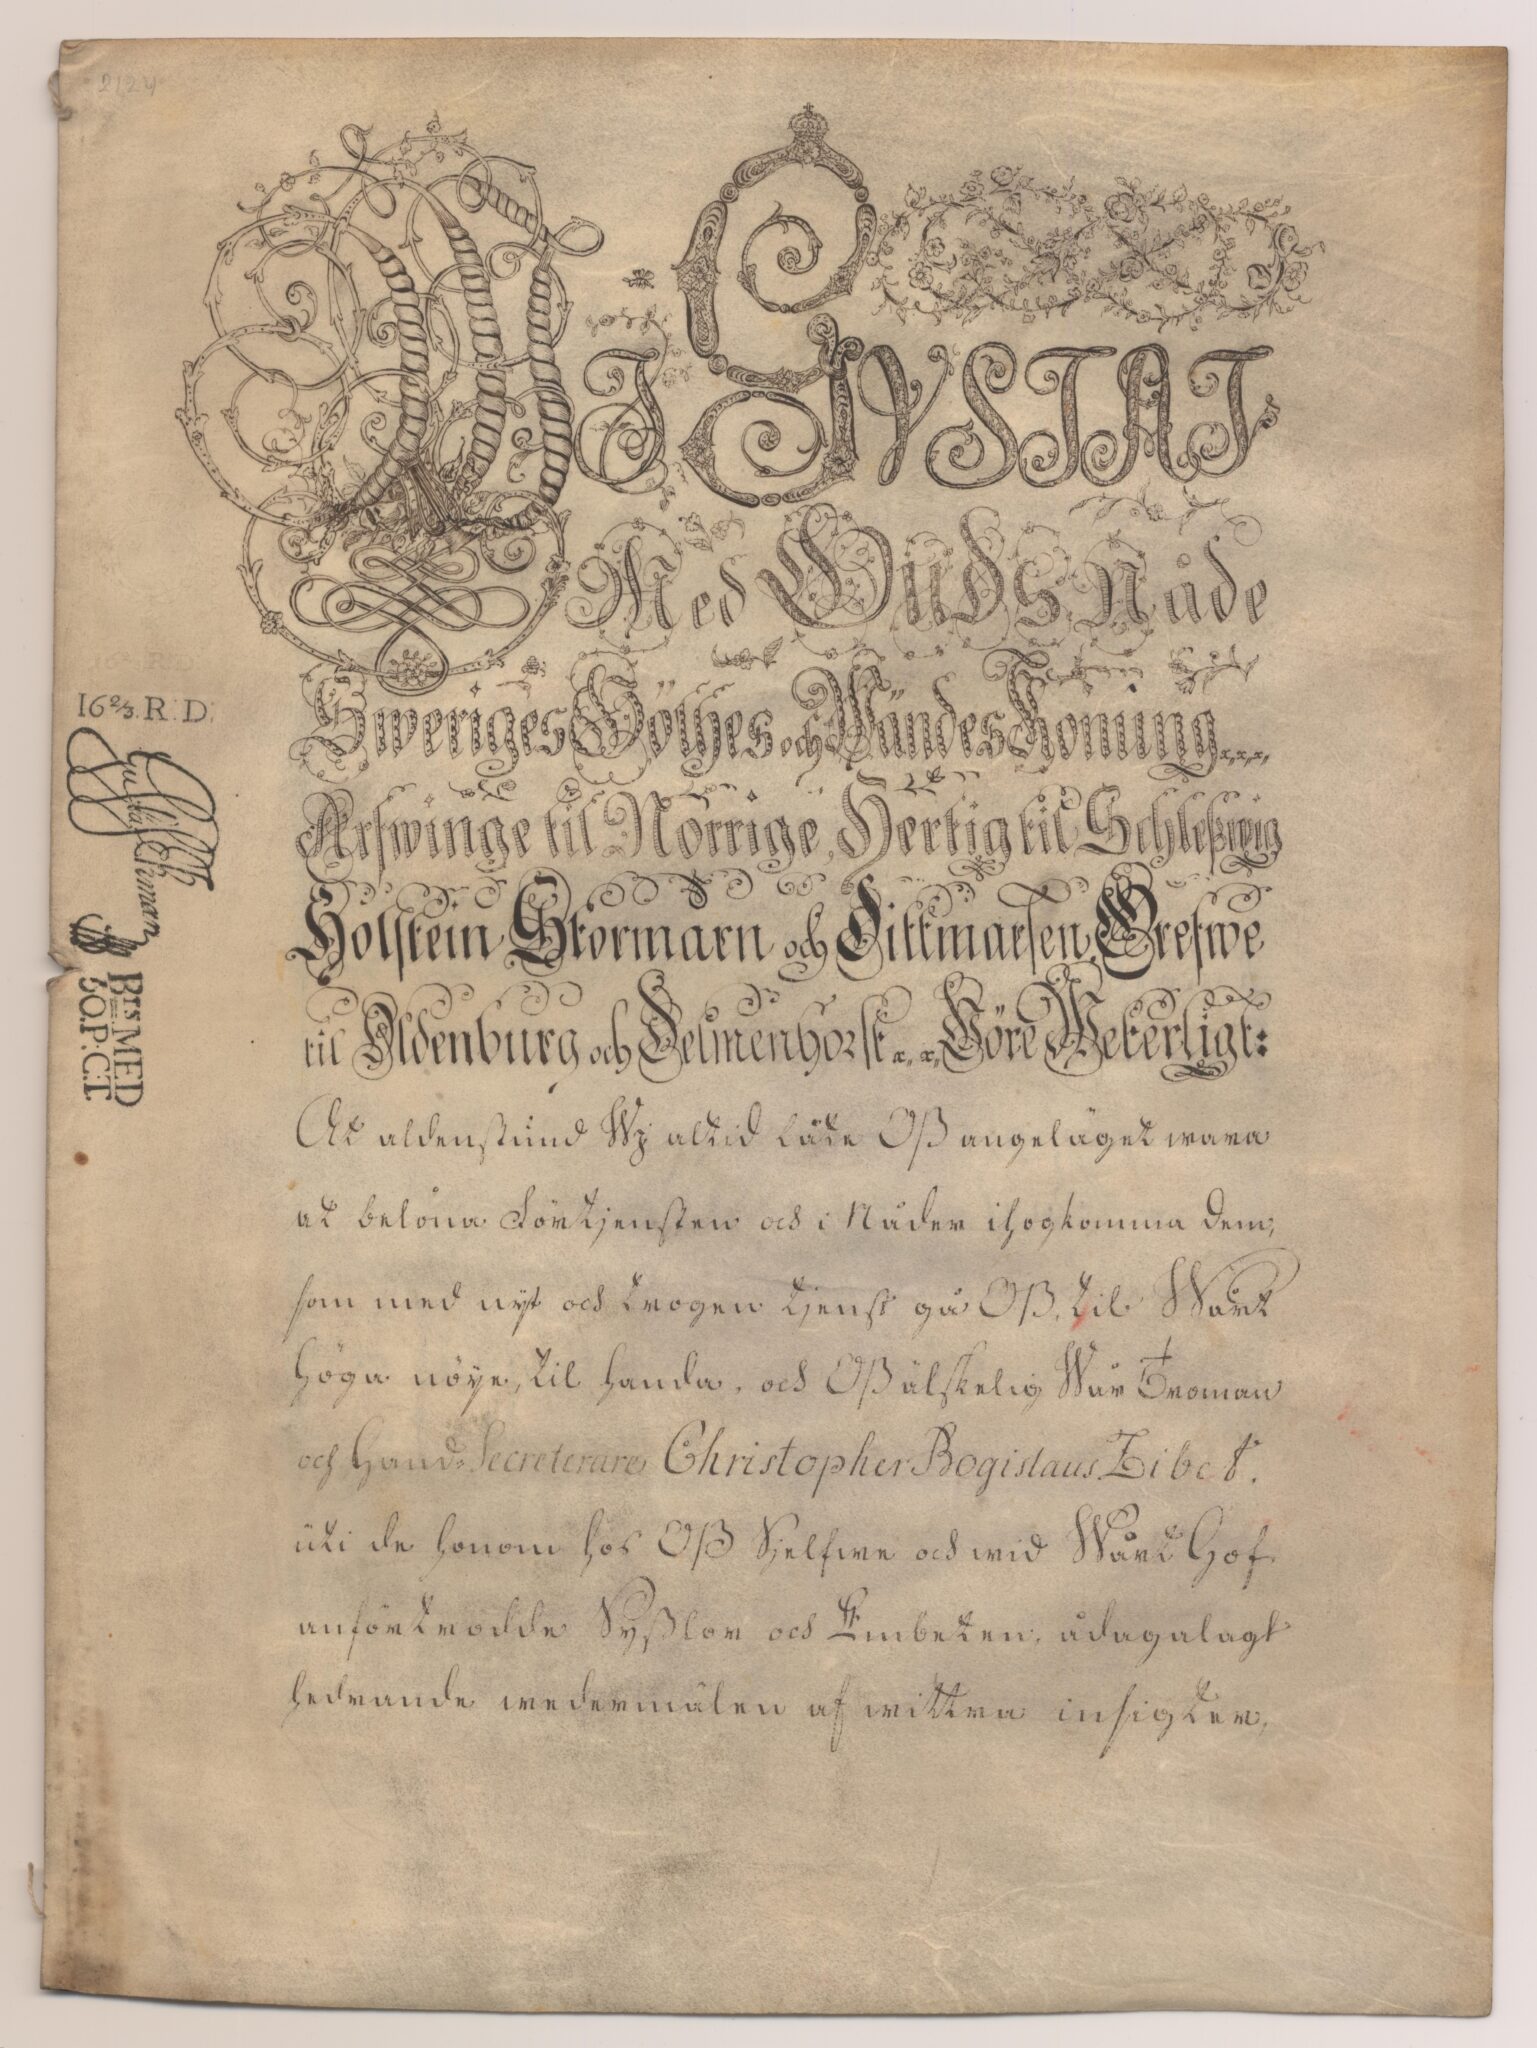 2124
WI GUSTAF
Med Guds Nåde
Sweriges Göthes och Wändes Konung x,,x,,x,,
Arfwinge til Norrige, Hertig til Schleßwig
Holstein Stormarn och Dittmarsen, Grefwe
til Oldenburg och Delmenhorst x,,x,, Göre Weterligt:
At aldenstund Wj altid låte Oß angeläget wara
at belöna Förtjensten och i Nåder ihogkomma dem,
som med nyt och trogen tjenst gå Oß, til Wårt
höga nöye, til handa, och Oß älskelig Wår Troman
och Hand-Secreterare Christopher Bogislaus Zibet.
uti de honom hos Oß Sjelfwe och wid Wårt Hof
anförtrodde Syßlor och Embeten, ådagalagt
hedrande wedermälen af wittra insigter,
R: D:
BrsMED